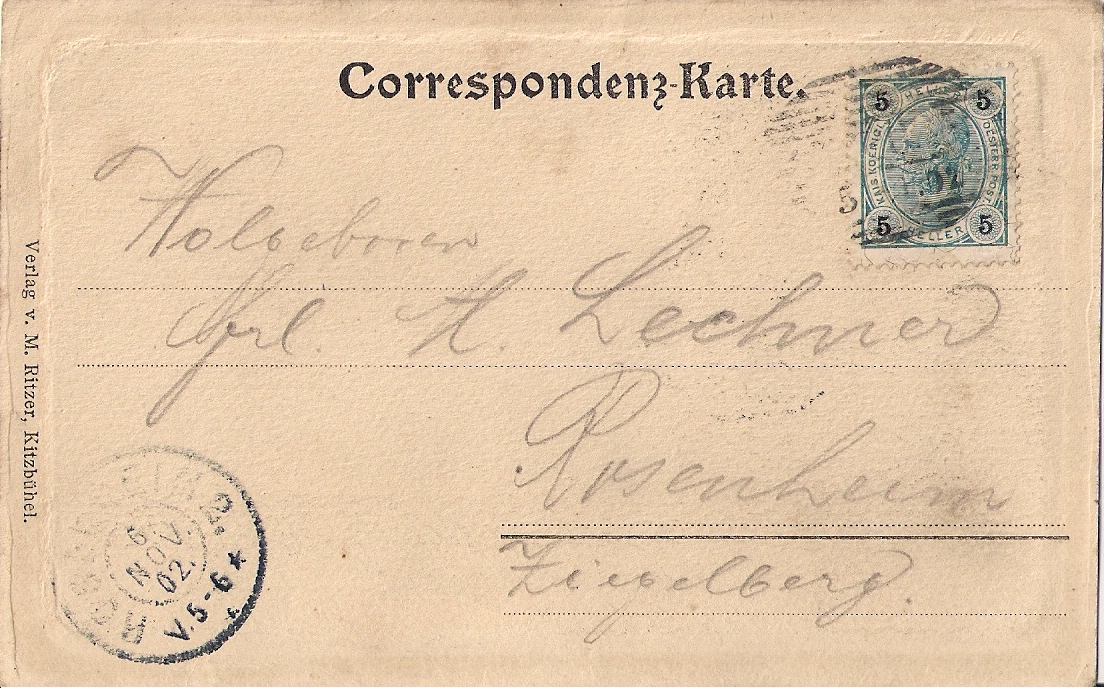 Correspondenz-Karte.
5 HELLER 5
KAIS. KOENIGL. OESTERR. POST.
5 HELLER 5
Wolgeboren
Frl. H. Lechner
Rosenheim
Ziegelberg.
Verlag v. M. Ritzer, Kitzbühel.
ROSENHEIM 2.
6
NOV.
02.
V.5-6